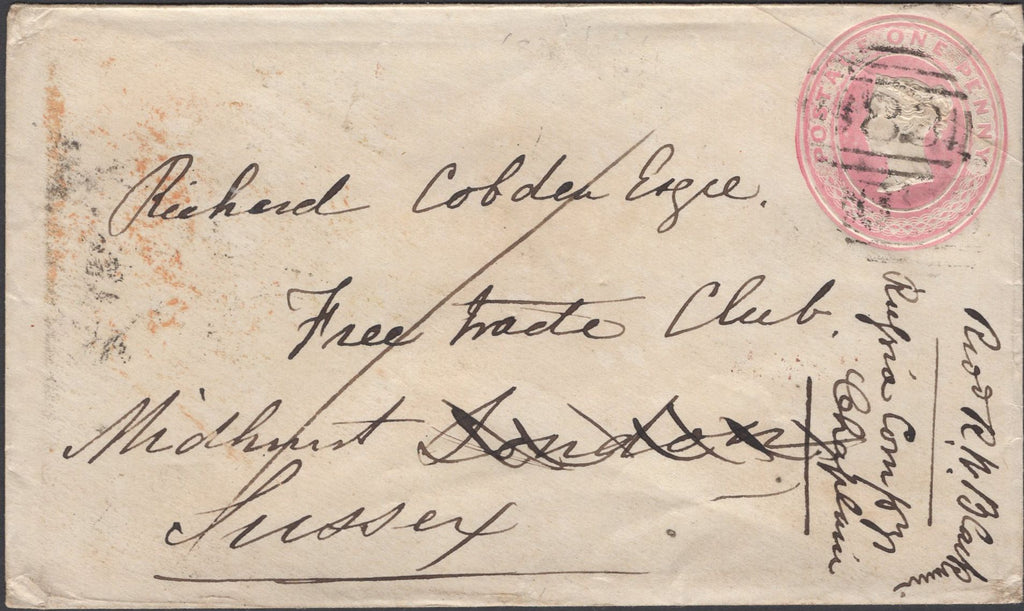 POSTAGE ONE PENNY
Richard Cobden Esqre.
Free trade Club.
Midhurst London
Sussex
Recd R. W. Black
Russia Compy
Chaplain